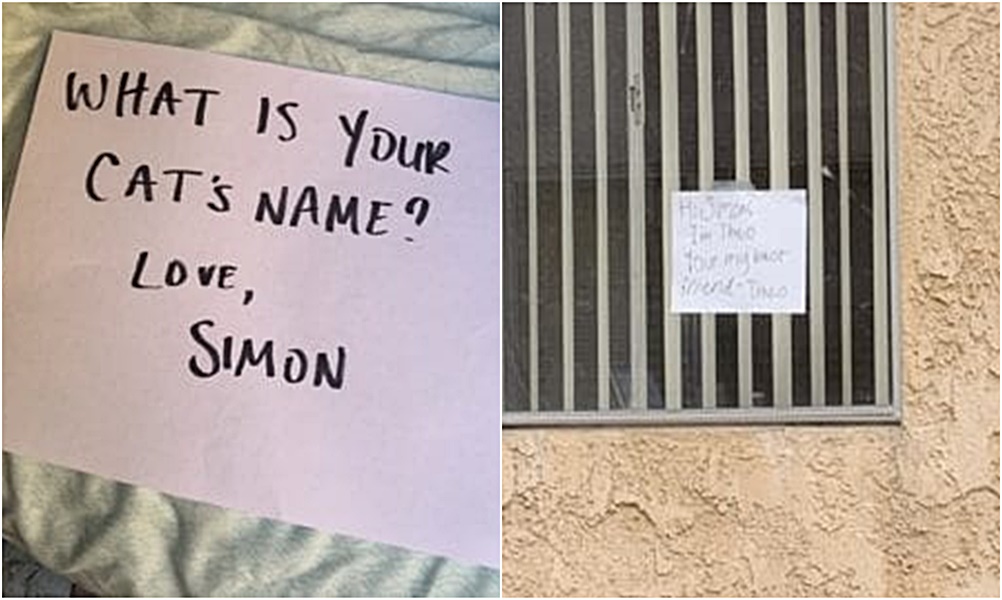 WHAT IS YOUR
CAT'S NAME?
LOVE,
SIMON
Hi Simon
Im Theo
Your my best
friend - Theo